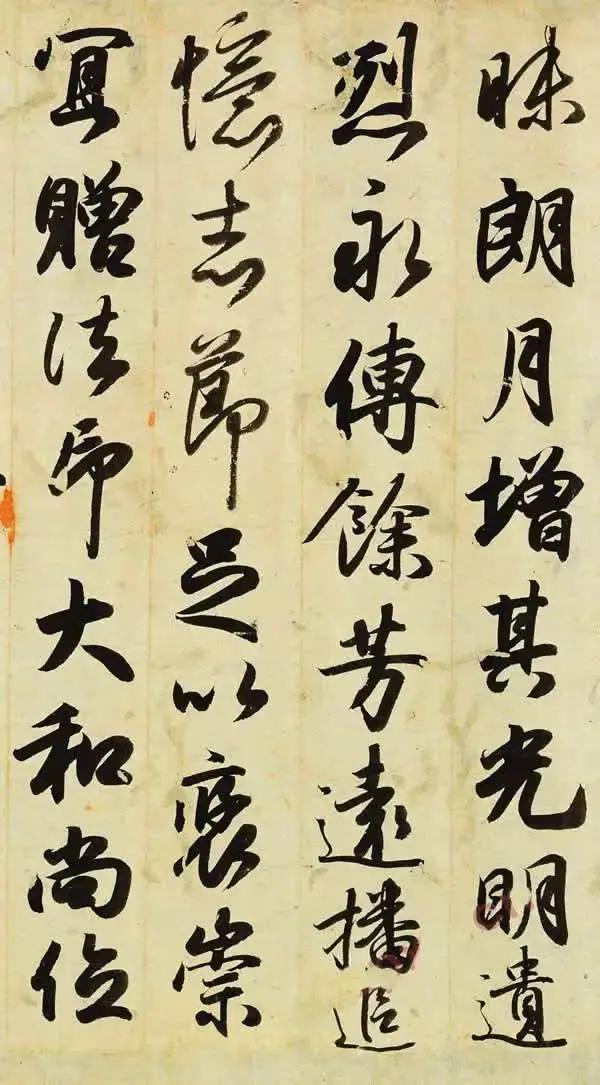 昧朗月增其光明遺
烈永傳餘芳遠播追
憶志節足以褒崇
冝贈法师大和尚位